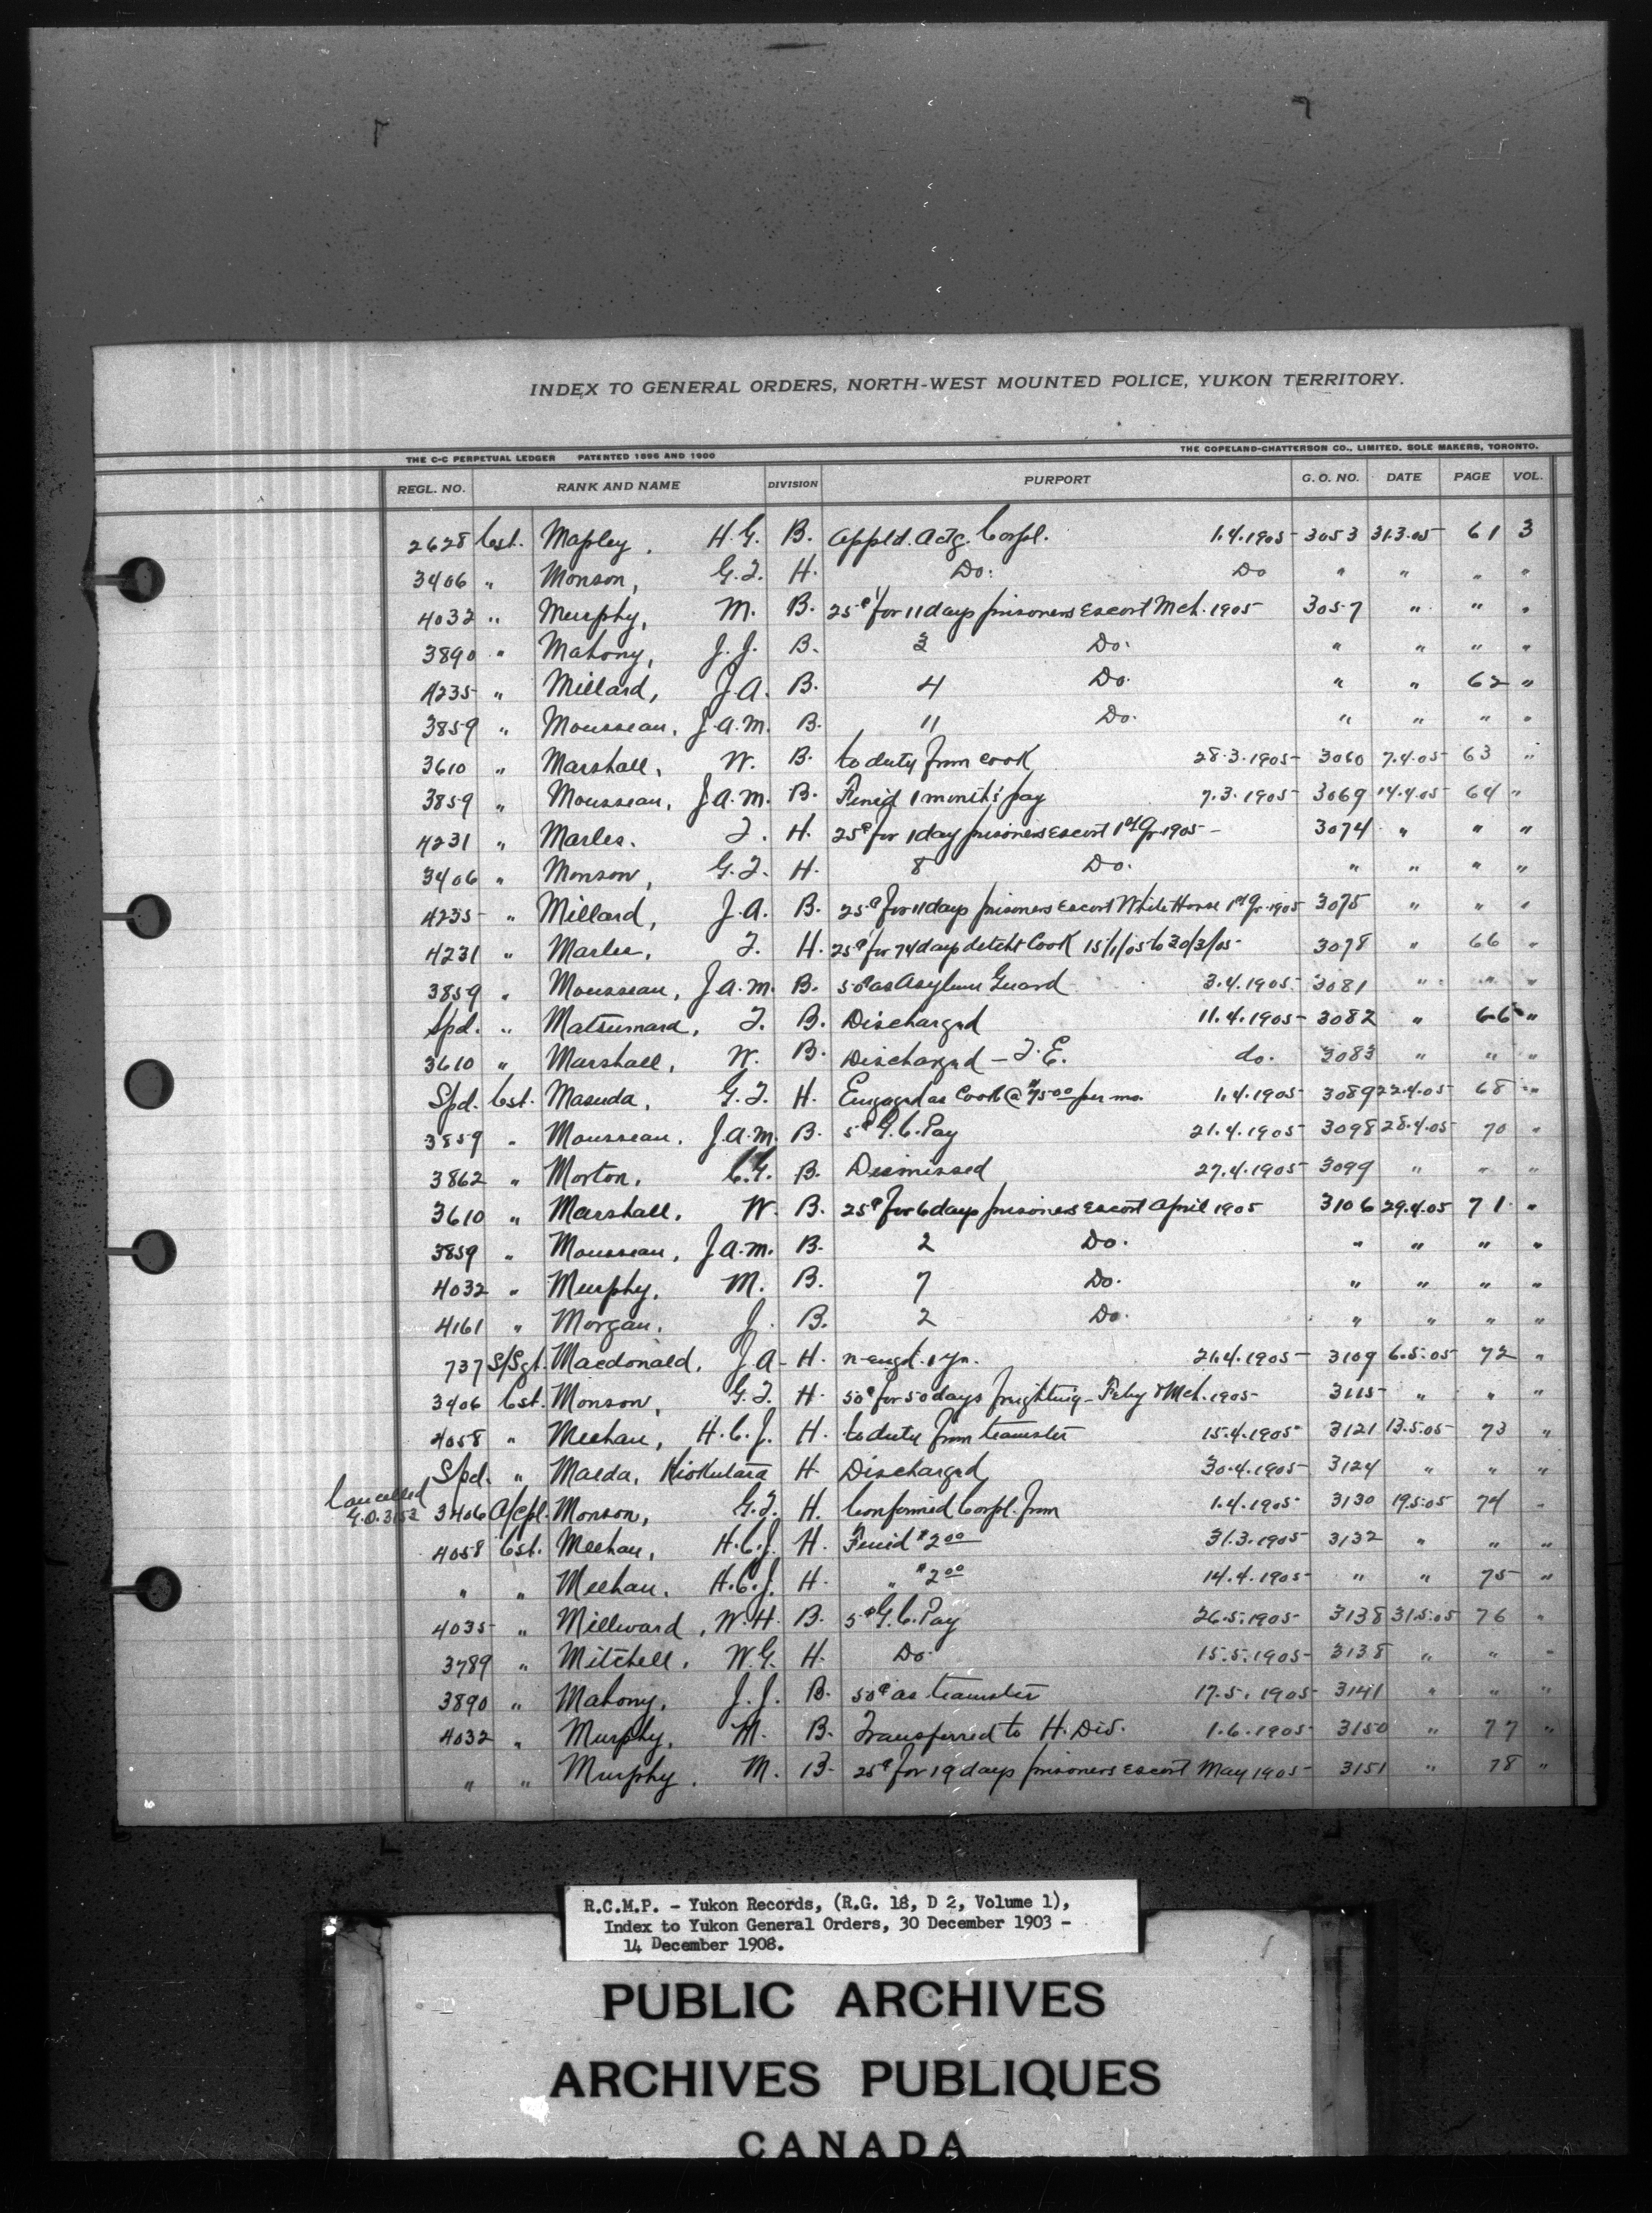 INDEX TO GENERAL ORDERS, NORTH-WEST MOUNTED POLICE, YUKON TERRITORY.
THE C-C PERPETUAL LEDGER PATENTED 1896 AND 1900 THE COPELAND-CHATTERSON CO., LIMITED, SOLE MAKERS, TORONTO.
REGL. NO. RANK AND NAME DIVISION PURPORT G. O. NO. DATE PAGE VOL.
2628 Cst. Mapley, H.G. B. Appld. Actg. Corpl. 1.4.1905 3053 31.3.05 61 3
3406 " Monson, G.J. H. Do. Do " " " "
4032 " Murphy, M. B. 25¢ for 11 days prisoners Escort Mch. 1905 3057 " " "
3890 " Mahony, J.J. B. 3 Do. " " " "
4235 " Millard, J.A. B. 4 Do. " " 62 "
3859 " Mousseau, J.A.M. B. 11 Do. " " " "
3610 " Marshall, W. B. to duty from cook 28.3.1905 3060 7.4.05 63 "
3859 " Mousseau, J.A.M. B. Fined 1 month's pay 7.3.1905 3069 14.4.05 64 "
4231 " Marles. J. H. 25¢ for 1 day prisoners Escort 1st Qr. 1905 3074 " " "
3406 " Monson, G.J. H. 8 Do. " " " "
4235 " Millard, J.A. B. 25¢ for 11 days prisoners Escort White Horse 1st Qr. 1905 3075 " " "
4231 " Marles, J. H. 25¢ for 74 days detcht Cook 15/1/05 to 30/3/05 3078 " 66 "
3859 " Mousseau, J.A.M. B. 50¢ as Asylum Guard 3.4.1905 3081 " " "
Spd. " Matsumara, J. B. Discharged 11.4.1905 3082 " 66 "
3610 " Marshall, W. B. Discharged - T.E. do. 3083 " " "
Spd. Cst. Masuda, G.J. H. Engaged as Cook @ $75.00 per mo. 1.4.1905 3089 22.4.05 68 "
3859 " Mousseau, J.A.M. B. 5¢ G.C. Pay 21.4.1905 3098 28.4.05 70 "
3862 " Morton, C.G. B. Dismissed 27.4.1905 3099 " " "
3610 " Marshall, W. B. 25¢ for 6 days prisoners Escort April 1905 3106 29.4.05 71 "
3859 " Mousseau, J.A.M. B. 2 Do. " " " "
4032 " Murphy, M. B. 7 Do. " " " "
4161 " Morgan, J. B. 2 Do. " " " "
737 S/Sgt. Macdonald, J.A. H. re-engd. 1 yr. 21.4.1905 3109 6.5.05 72 "
3406 Cst. Monson, G.J. H. 50¢ for 50 days freighting - Feby & Mch. 1905 3115 " " "
4058 " Meehan, H.C.J. H. to duty from teamster 15.4.1905 3121 13.5.05 73 "
Spd. " Maeda, Kiokutara H. Discharged 30.4.1905 3124 " " "
Cancelled
G.O. 3152 3406 A/Cpl. Monson, G.J. H. Confirmed Corpl. from 1.4.1905 3130 19.5.05 74 "
4058 Cst. Meehan, H.C.J. H. Fined $2.00 31.3.1905 3132 " " "
" " Meehan, H.C.J. H. " $2.00 14.4.1905 " " 75 "
4035 " Millward, W.H. B. 5¢ G.C. Pay 26.5.1905 3138 31.5.05 76 "
3789 " Mitchell, W.G. H. Do. 15.5.1905 3138 " " "
3890 " Mahony, J.J. B. 50¢ as teamster 17.5.1905 3141 " " "
4032 " Murphy, M. B. Transferred to H. Div. 1.6.1905 3150 " 77 "
" " Murphy, M. B. 25¢ for 19 days prisoners Escort May 1905 3151 " 78 "
R.C.M.P. - Yukon Records, (R.G. 18, D 2, Volume 1),
Index to Yukon General Orders, 30 December 1903 -
14 December 1908.
PUBLIC ARCHIVES
ARCHIVES PUBLIQUES
CANADA